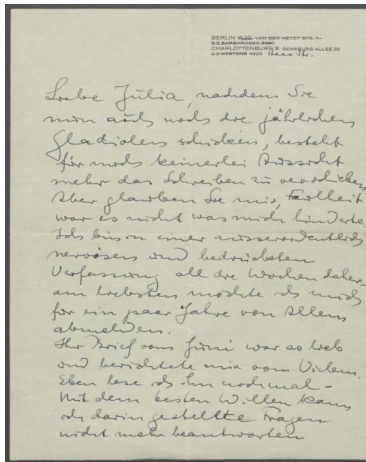 BERLIN W.10. VON DER HEYDT STR. 1
B.5. BARBAROSSA
CHARLOTTENBURG 9. SENSBURG-ALLEE 26
Liebe Julia, nachdem Sie
nun auch noch die jährlichen
Gladiolen schicken, besteht
für mich keinerlei Aussicht
mehr das Schreiben zu
Aber glauben Sie mir, Faulheit
war es nicht was mich hinderte
Ich bin in einer ausserordentlich
nervösen und bedrückten
Verfassung all die Wochen daher –
am liebsten möchte ich mich
für ein paar Jahre von Allem
abmelden.
Ihr Brief vom Juni war so lieb
und berichtete mir von Vielem.
Eben lese ich ihn nochmal –
Mit dem besten Willen kann
ich darin gestellte Fragen
nicht mehr beantworten